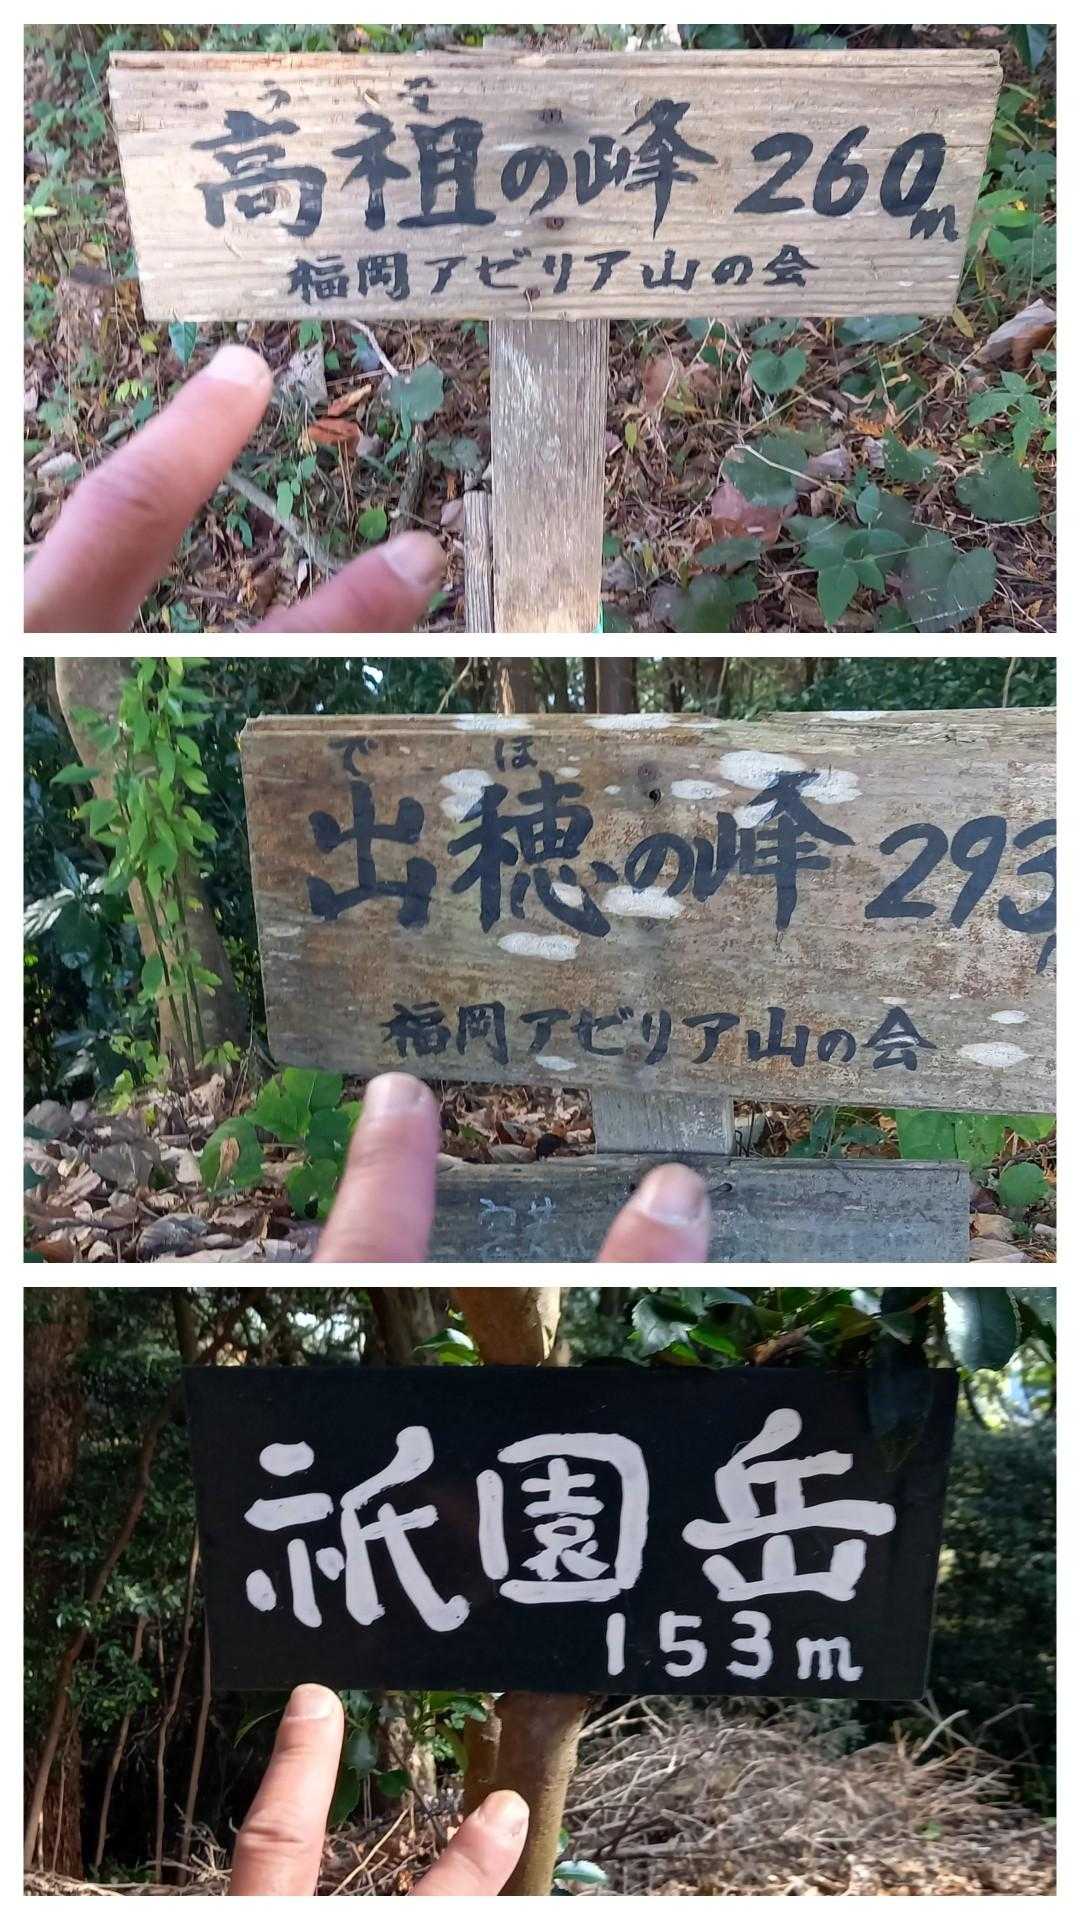 う そ
高祖の峰 260m
福岡アゼリア山の会
で ほ
出穂の峰 293
福岡アゼリア山の会
祇園岳
153m